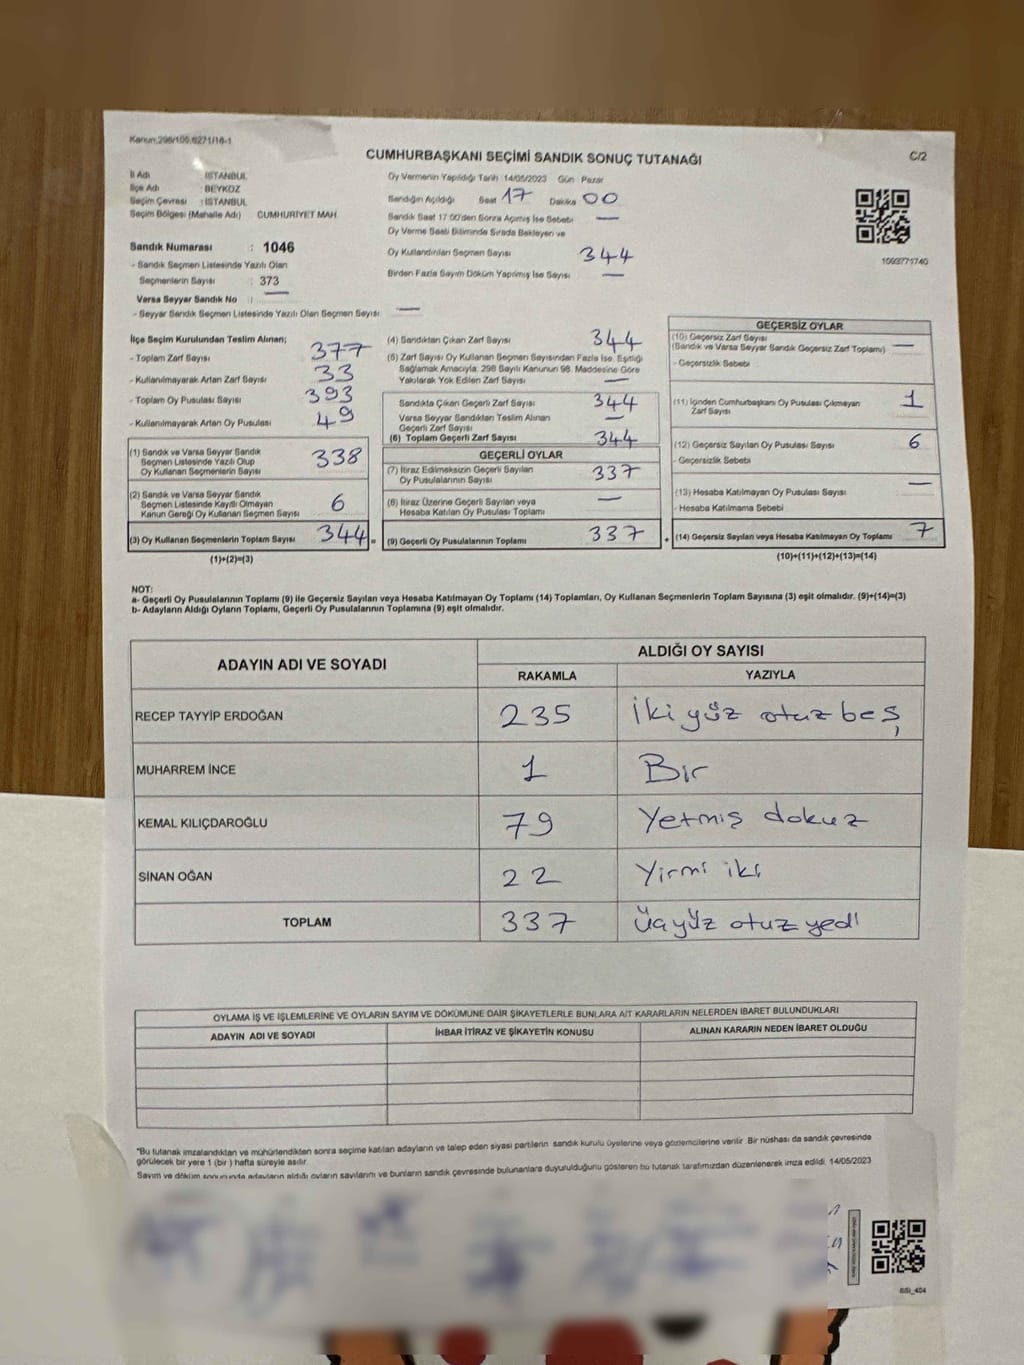 Kanun:298/105,6271/16-1
CUMHURBAŞKANI SEÇİMİ SANDIK SONUÇ TUTANAĞI
C/2
İl Adı : İSTANBUL
İlçe Adı : BEYKOZ
Seçim Çevresi : İSTANBUL
Seçim Bölgesi (Mahalle Adı) CUMHURİYET MAH.
Oy Vermenin Yapıldığı Tarih :14/05/2023 Gün : Pazar
Sandığın Açıldığı Saat 17 Dakika 00
Sandık Saat 17:00'den Sonra Açılmış İse Sebebi —
Oy Verme Saati Bitiminde Sırada Bekleyen ve
Oy Kullandırılan Seçmen Sayısı 344
Birden Fazla Sayım Döküm Yapılmış İse Sayısı —
1093771740
Sandık Numarası : 1046
- Sandık Seçmen Listesinde Yazılı Olan
Seçmenlerin Sayısı : 373
Varsa Seyyar Sandık No : —
- Seyyar Sandık Seçmen Listesinde Yazılı Olan Seçmen Sayısı —
İlçe Seçim Kurulundan Teslim Alınan;
- Toplam Zarf Sayısı 377
- Kullanılmayarak Artan Zarf Sayısı 33
- Toplam Oy Pusulası Sayısı 393
- Kullanılmayarak Artan Oy Pusulası 49
(1) Sandık ve Varsa Seyyar Sandık
Seçmen Listesinde Yazılı Olup
Oy Kullanan Seçmenlerin Sayısı 338
(2) Sandık ve Varsa Seyyar Sandık
Seçmen Listesinde Kayıtlı Olmayan
Kanun Gereği Oy Kullanan Seçmen Sayısı 6
(3) Oy Kullanan Seçmenlerin Toplam Sayısı 344 =
(1)+(2)=(3)
(4) Sandıktan Çıkan Zarf Sayısı 344
(5) Zarf Sayısı Oy Kullanan Seçmen Sayısından Fazla İse, Eşitliği
Sağlamak Amacıyla, 298 Sayılı Kanunun 98. Maddesine Göre
Yakılarak Yok Edilen Zarf Sayısı —
Sandıkta Çıkan Geçerli Zarf Sayısı 344
Varsa Seyyar Sandıktan Teslim Alınan
Geçerli Zarf Sayısı —
(6) Toplam Geçerli Zarf Sayısı 344
GEÇERLİ OYLAR
(7) İtiraz Edilmeksizin Geçerli Sayılan
Oy Pusulalarının Sayısı 337
(8) İtiraz Üzerine Geçerli Sayılan veya
Hesaba Katılan Oy Pusulası Toplamı —
(9) Geçerli Oy Pusulalarının Toplamı 337 +
GEÇERSİZ OYLAR
(10) Geçersiz Zarf Sayısı
(Sandık ve Varsa Seyyar Sandık Geçersiz Zarf Toplamı) —
- Geçersizlik Sebebi
(11) İçinden Cumhurbaşkanı Oy Pusulası Çıkmayan
Zarf Sayısı 1
(12) Geçersiz Sayılan Oy Pusulası Sayısı 6
- Geçersizlik Sebebi
(13) Hesaba Katılmayan Oy Pusulası Sayısı —
- Hesaba Katılmama Sebebi
(14) Geçersiz Sayılan veya Hesaba Katılmayan Oy Toplamı 7
(10)+(11)+(12)+(13)=(14)
NOT:
a- Geçerli Oy Pusulalarının Toplamı (9) ile Geçersiz Sayılan veya Hesaba Katılmayan Oy Toplamı (14) Toplamları, Oy Kullanan Seçmenlerin Toplam Sayısına (3) eşit olmalıdır. (9)+(14)=(3)
b- Adayların Aldığı Oyların Toplamı, Geçerli Oy Pusulalarının Toplamına (9) eşit olmalıdır.
ADAYIN ADI VE SOYADI ALDIĞI OY SAYISI
RAKAMLA YAZIYLA
RECEP TAYYİP ERDOĞAN 235 İki yüz otuz beş
MUHARREM İNCE 1 Bir
KEMAL KILIÇDAROĞLU 79 Yetmiş dokuz
SİNAN OĞAN 22 Yirmi iki
TOPLAM 337 Üçyüz otuz yedi
OYLAMA İŞ VE İŞLEMLERİNE VE OYLARIN SAYIM VE DÖKÜMÜNE DAİR ŞİKAYETLERLE BUNLARA AİT KARARLARIN NELERDEN İBARET BULUNDUKLARI
ADAYIN ADI VE SOYADI İHBAR İTİRAZ VE ŞİKAYETİN KONUSU ALINAN KARARIN NEDEN İBARET OLDUĞU
"Bu tutanak imzalandıktan ve mühürlendikten sonra seçime katılan adayların ve talep eden siyasi partilerin sandık kurulu üyelerine veya gözlemcilerine verilir. Bir nüshası da sandık çevresinde
görülecek bir yere 1 (bir ) hafta süreyle asılır.
Sayım ve döküm sonucunda adayların aldığı oyların sayılarını ve bunların sandık çevresinde bulunanlara duyurulduğunu gösteren bu tutanak tarafımızdan düzenlenerek imza edildi. 14/05/2023